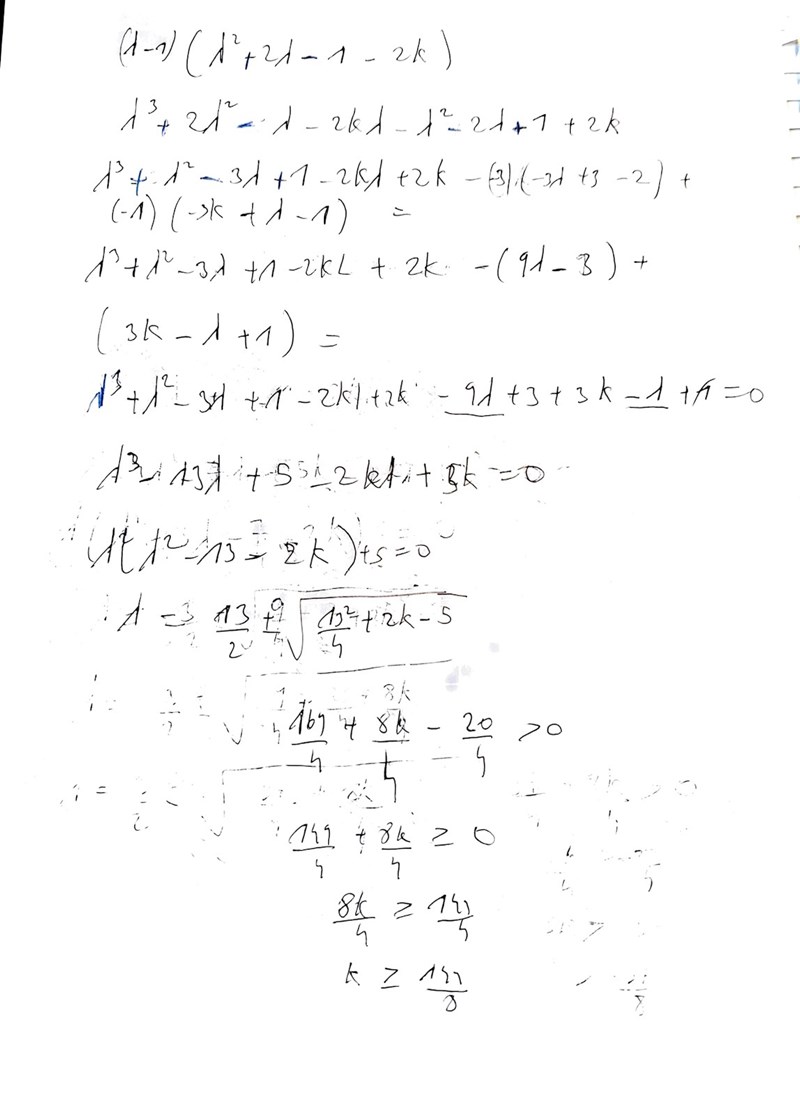 (λ-1) (λ²+2λ-1-2k)
λ³+2λ²-λ-2kλ-λ²-2λ+1+2k
λ³+λ²-3λ+1-2kλ+2k-(-3)·(-3λ+3-2)+
(-1)(-3k+λ-1) =
λ³+λ²-3λ+1-2kλ+2k-(9λ-3)+
(3k-λ+1) =
λ³+λ²-3λ+1-2kλ+2k-9λ+3+3k-λ+1=0
λ³-13λ+5-2kλ+5k=0
λ(λ²-13-2k)+5=0
λ = 13/2 ± √(13²/4+2k-5)
169/4 + 8k/4 - 20/4 >0
149/4 + 8k/4 ≥ 0
8k/4 ≥ 149/4
k ≥ 149/8